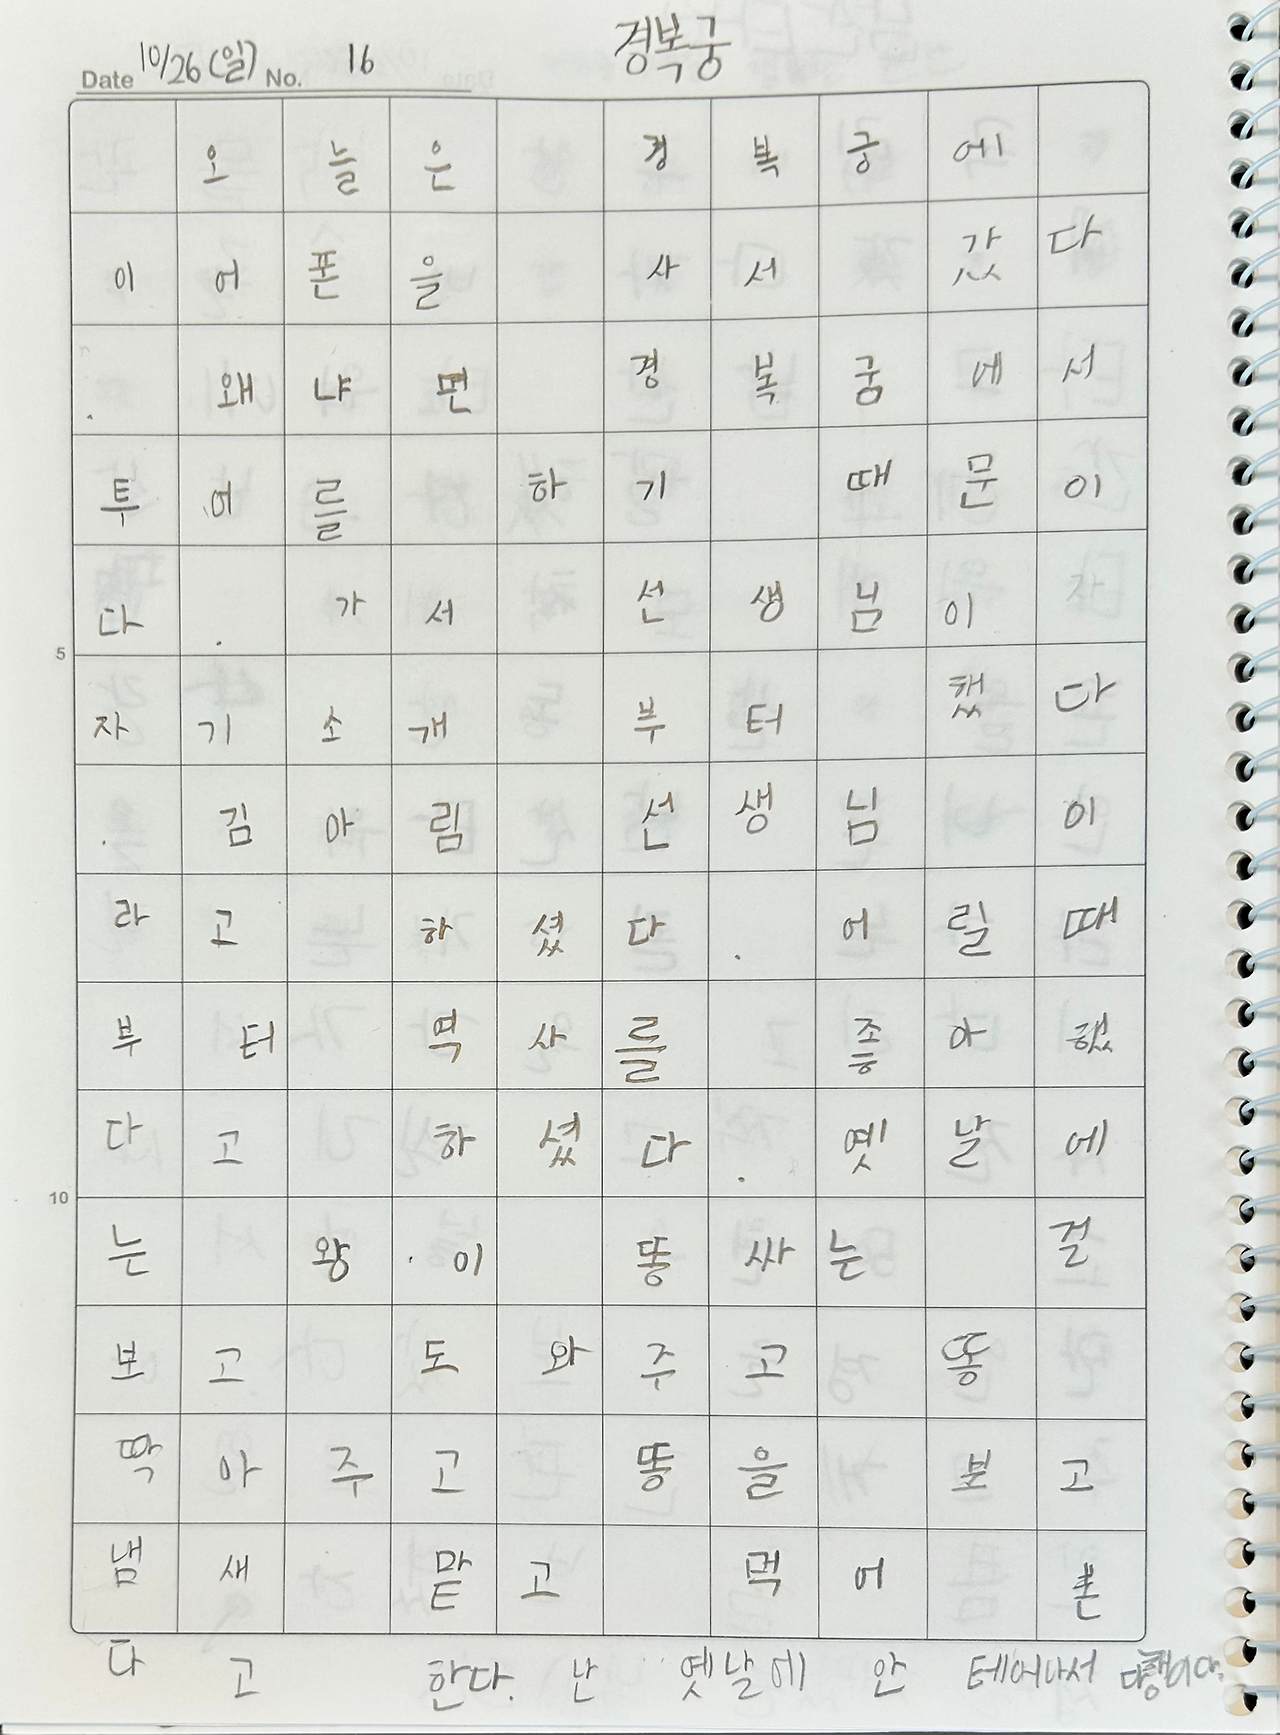 경복궁
Date 10/26(일) No. 16
오늘은 경복궁에
이어폰을 사서 갔다
. 왜냐면 경복궁에서
투어를 하기 때문이
다. 가서 선생님이
5
자기소개 부터 했다
. 김아림 선생님 이
라고 하셨다. 어릴때
부터 역사를 좋아했
다고 하셨다. 옛날에
10
는 왕이 똥싸는 걸
보고 도와주고 똥
딱아주고 똥을 보고
냄새 맡고 먹어
다고 한다. 난 옛날에 안 테어나서 다행이다.